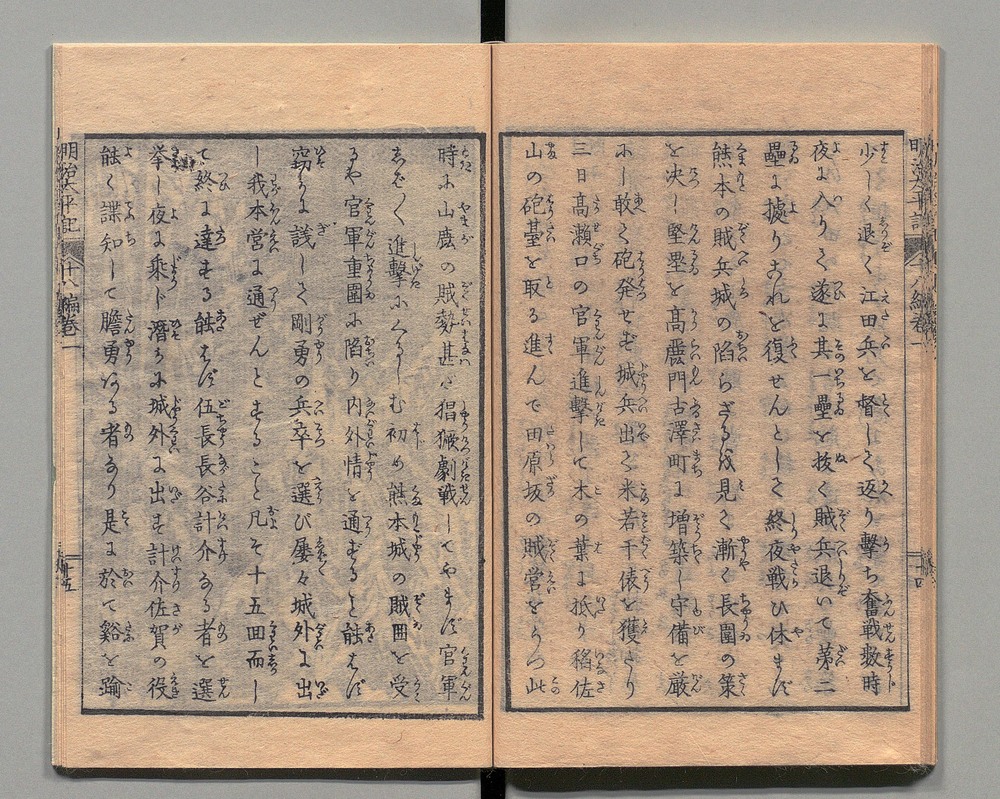 少しく退く江田兵を督して返り撃ち奮戦数時
夜に入りて遂に其一塁を抜く賊兵退いて第二
塁に據りこれを復せんとして終夜戦ひ休まず
熊本の賊兵城の陥らざるを見て漸く長囲の策
を决し堅塁を高麗門古澤町に増築し守備を厳
にし敢て砲発せず城兵出て米若干俵を獲たり
三日高瀬口の官軍進撃して木の葉に抵り稲佐
山の砲䑓を取る進んで田原坂の賊営をうつ此
時に山鹿の賊勢甚だ猖獗劇戦してやまず官軍
しば〳〵進撃にくるしむ初め熊本城の賊囲を受
るや官軍重圍に陥り内外情を通ずると能はず
窃かに議して剛勇の兵卒を選び屡々城外に出
し我本営に通ぜんとすること凡そ十五回而し
て終に達する能はず伍長長谷計介なる者を選
挙し夜に乗じ潜かに城外に出す計介佐賀の役
能く諜知して膽勇ある者なり是に於て谿を踰
明治太平記
十八編巻一
十五
明治太平記
十八編巻一
十四